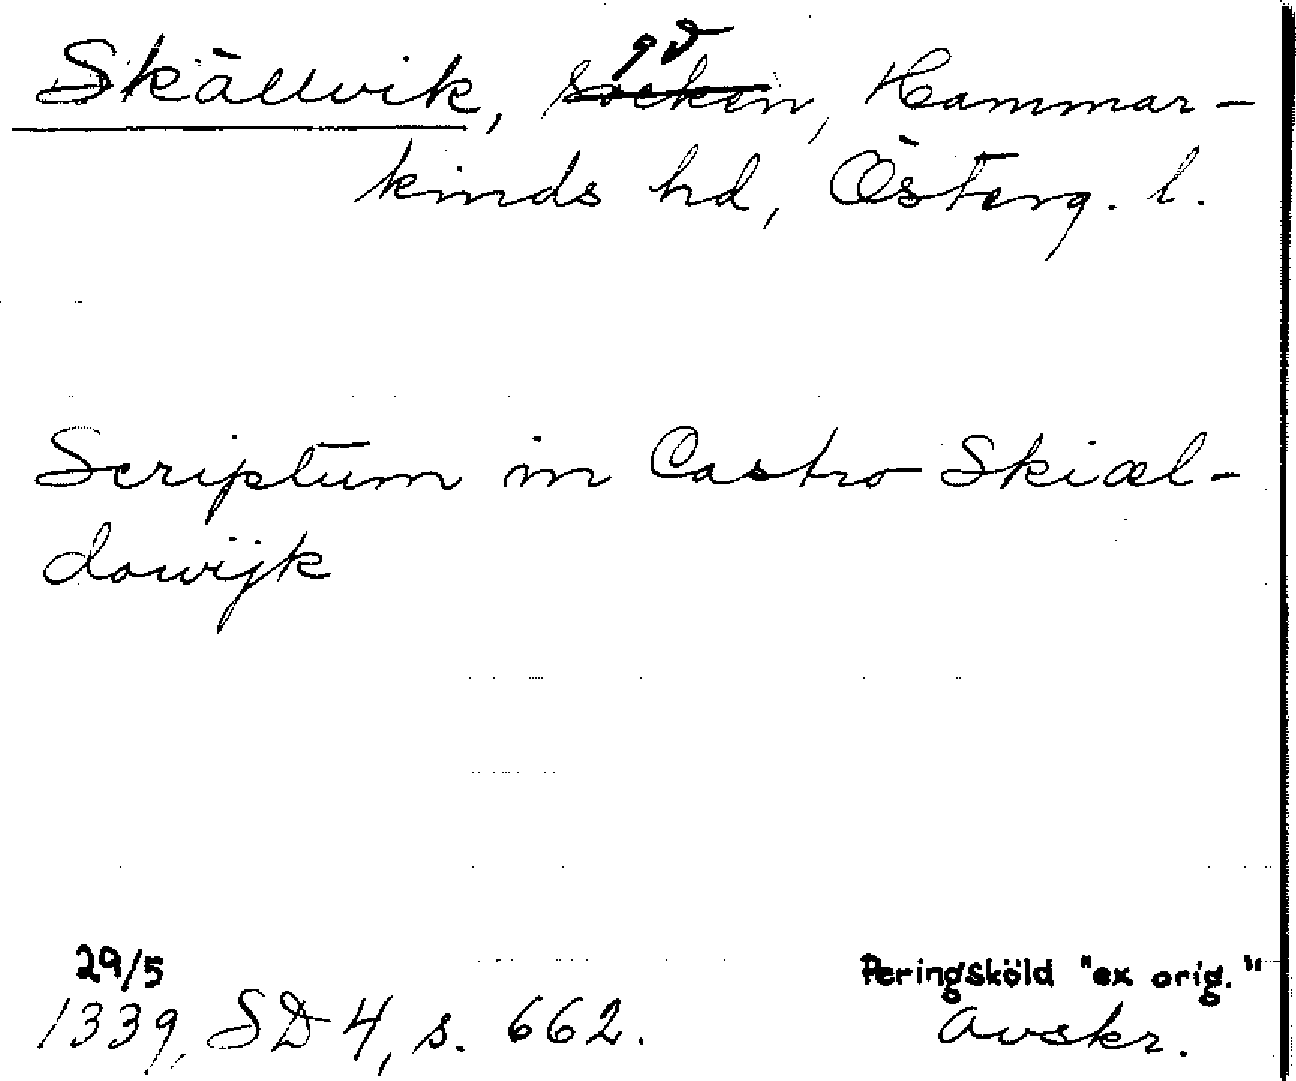 gd
Skällvik, socken, Hammar-
kinds hd, Österg. l.
Scriptum in Castro Skiæl-
dowijk
29/5
1339, SD 4, s. 662.
Peringsköld "ex orig."
Avskr.